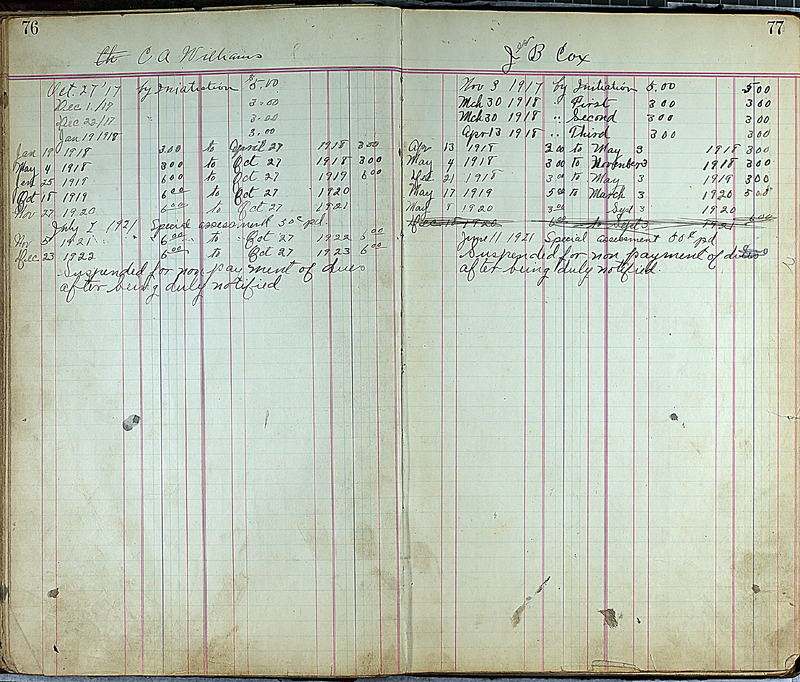 76
C A Williams
Oct. 27 '17 by Iniatiation $5.00
Dec 1/17 3.00
Dec 22/17 3.00
Jan 19 1918 3.00
Jan 19 1918 3.00 to April 27 1918 3.00
May 4 1918 3.00 to Oct 27 1918 3.00
Jan 25 1919 6.00 to Oct 27 1919 6.00
Oct 18 1919 6.00 to Oct 27 1920
Nov 27 1920 6.00 to Oct 27 1921
July 2 1921 Special assessment 50¢ pd.
Nov 5 1921 6.00 to Oct 27 1922 5.00
Dec 23 1922 6.00 to Oct 27 1923 6.00
Suspended for non payment of dues
after being duly notified
77
B Cox
Nov 3 1917 by Initiation 5.00 5.00
Mch 30 1918 " First 3 00 3 00
Mch 30 1918 " Second 3 00 3 00
Apr 13 1918 " Third 3 00 3 00
Apr 13 1918 3.00 to May 3 1918 3 00
May 4 1918 3 00 to November 3 1918 3 00
Dec 21 1918 3 00 to May 3 1919 3 00
May 17 1919 5 00 to March 3 1920 5 00
May 8 1920 3 00 Sept 3 1920
Dec 18 1920 6 00 to Sept 3 1921 6 00
June 11 1921 Special assessment 50¢ pd
Suspended for non payment of dues
after being duly notified.